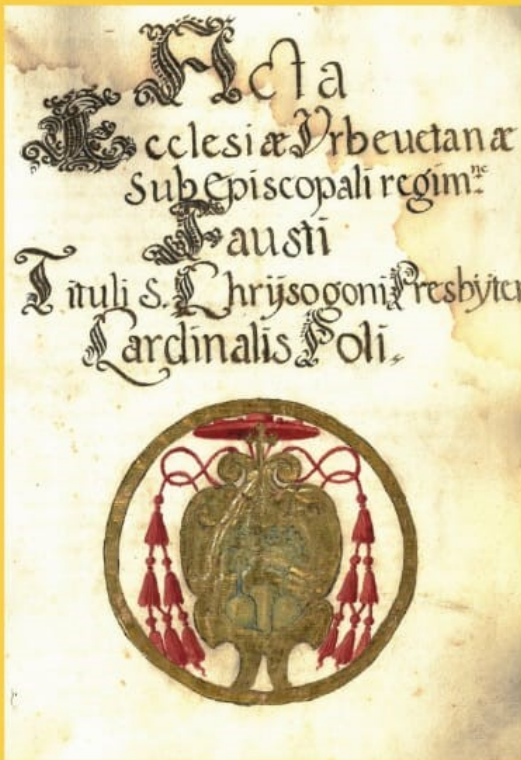 Acta
Ecclesiæ Vrbeuetanæ
Sub Episcopali regim.ne
Fausti
Tituli S. Chrÿsogoni Presbÿter
Cardinalis Poli.